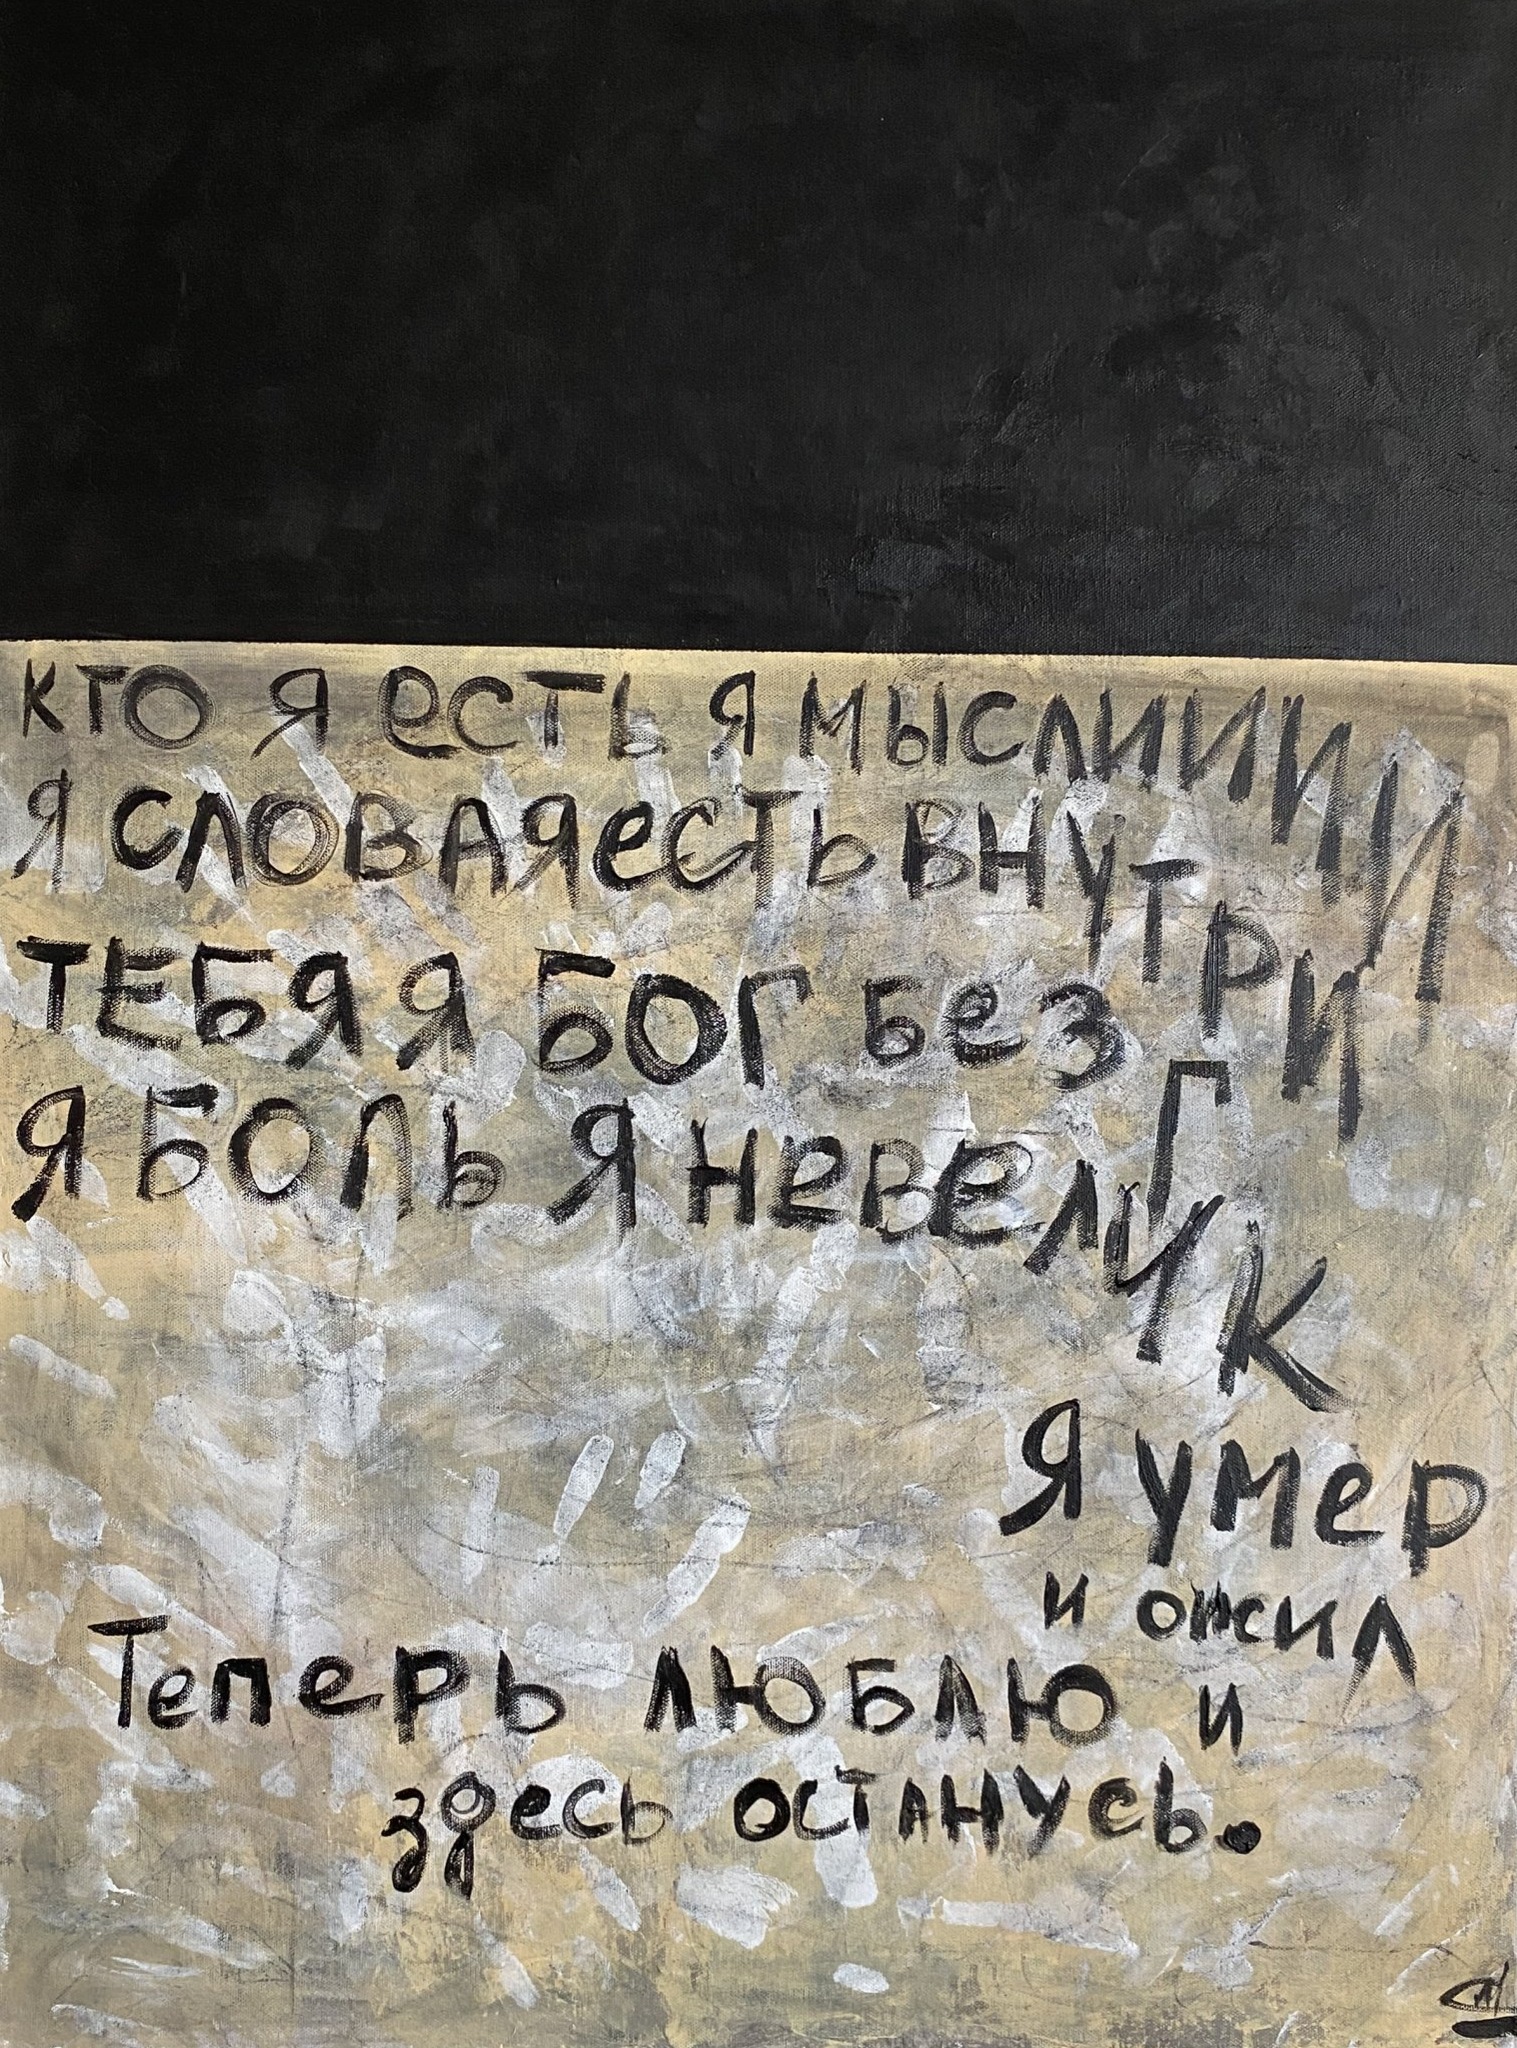 кто я есть я мыслииииии
я словаяесть внутри
ТЕБЯ Я БОГ без г
Я БОЛЬ Я Невелик
Я умер
и ожил
Теперь люблю и
здесь останусь.